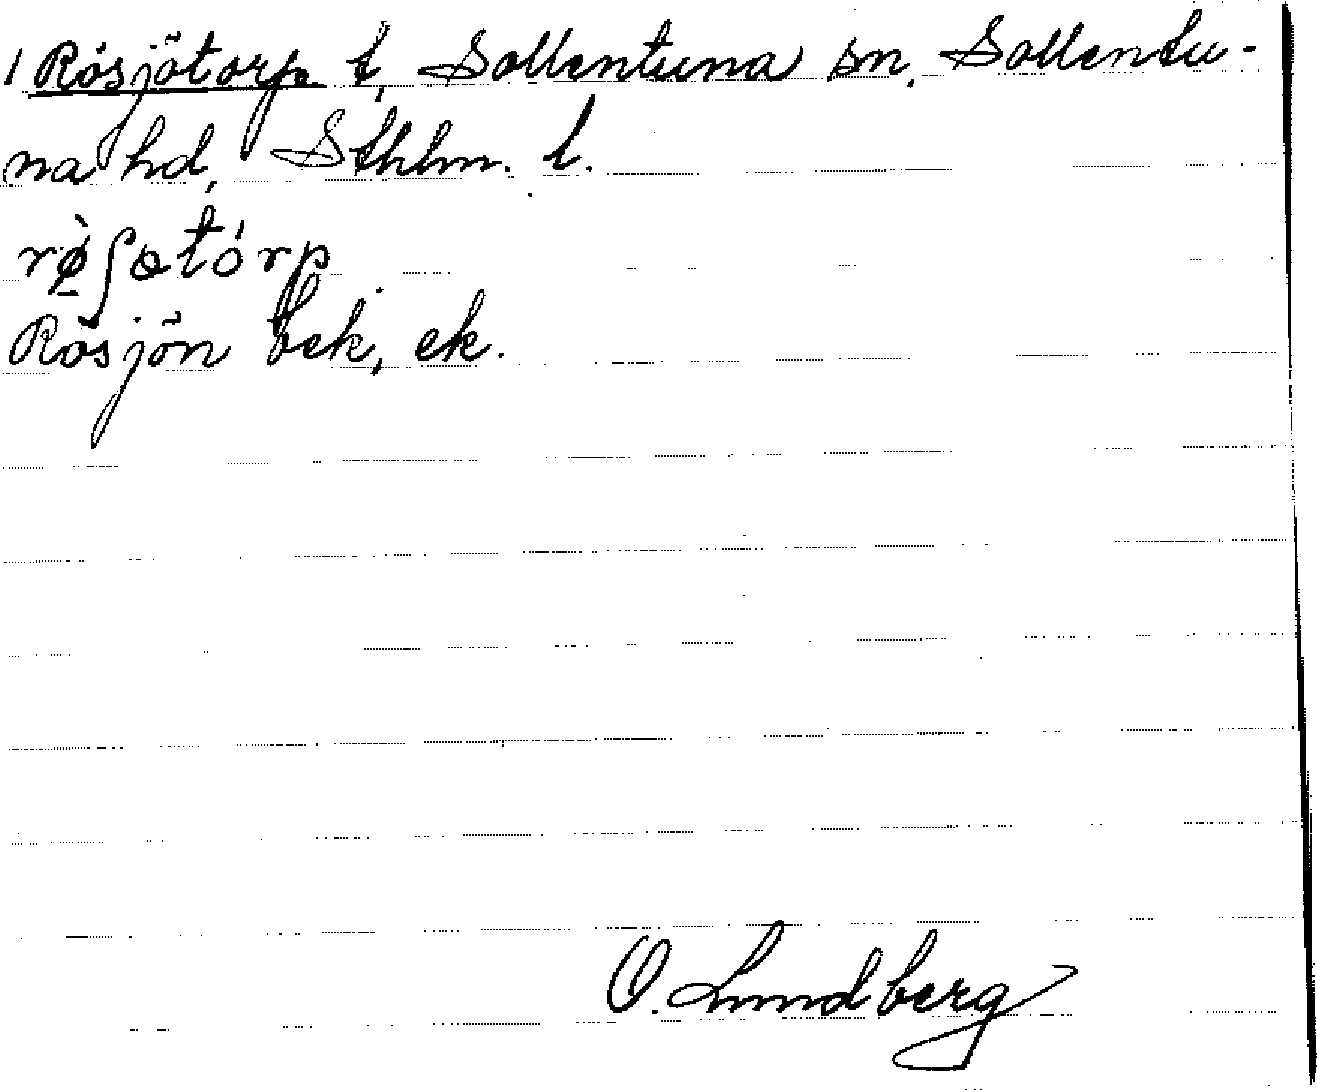 1 Rösjötorp t, Sollentuna sn, Sollentu-
na hd, Sthlm. l.
rø̀ʃətórp
Rösjön bek, ek.
O. Lundberg